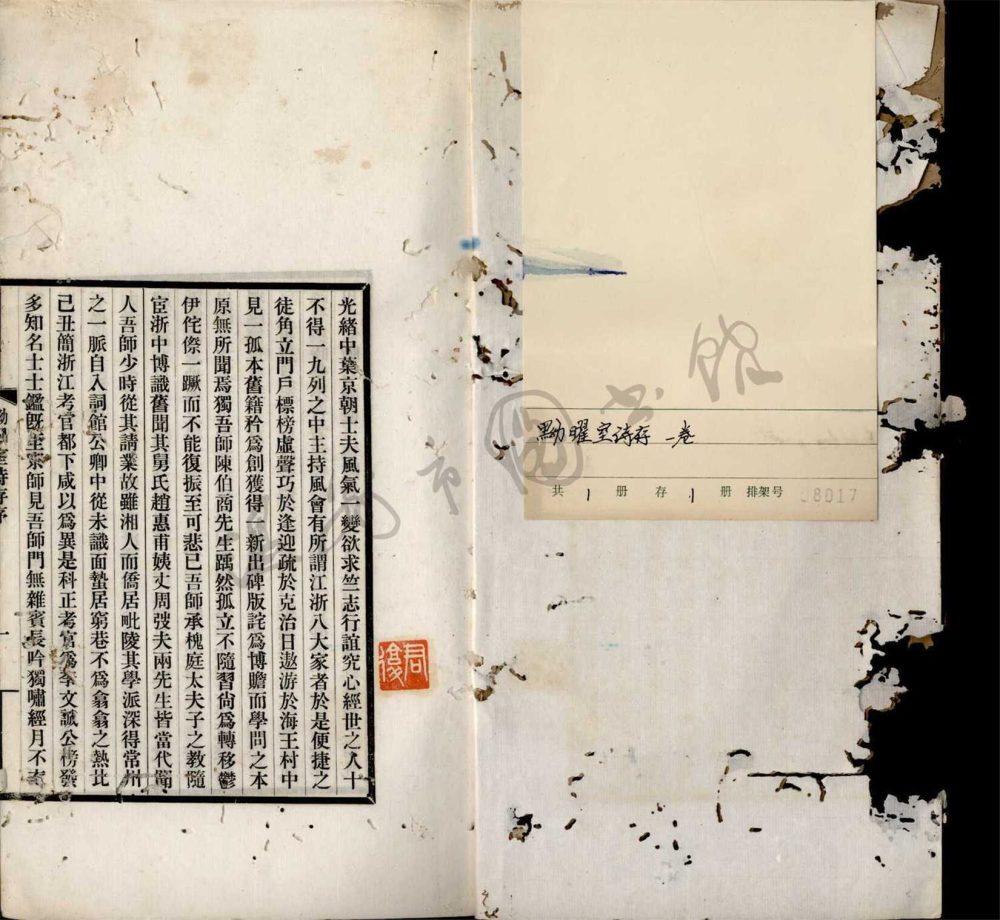 黝曜室诗存 一卷
共 1 册 存 1 册 排架号 08017
首都图书馆
光緒中葉京朝士夫風氣一變欲求竺志行誼究心經世之人十
不得一九列之中主持風會有所謂江浙八大家者於是便捷之
徒角立門戶標榜虛聲巧於逢迎疏於克治日遨游於海王村中
見一孤本舊籍矜爲創獲得一新出碑版詫爲博贍而學問之本
原無所聞焉獨吾師陳伯商先生踽然孤立不隨習尙爲轉移鬱
伊侘傺一蹶而不能復振至可悲已吾師承槐庭太夫子之教隨
宦浙中博識舊聞其舅氏趙惠甫姨丈周弢夫兩先生皆當代
人吾師少時從其請業故雖湘人而僑居毗陵其學派深得常州
之一脈自入詞館公卿中從未識面蟄居窮巷不爲翕翕之熱比
己丑簡浙江考官都下咸以爲異是科正考官爲李文誠公榜發
多知名士士鑑旣至京師見吾師門無雜賓長吟獨嘯經月不
室詩存序
君復